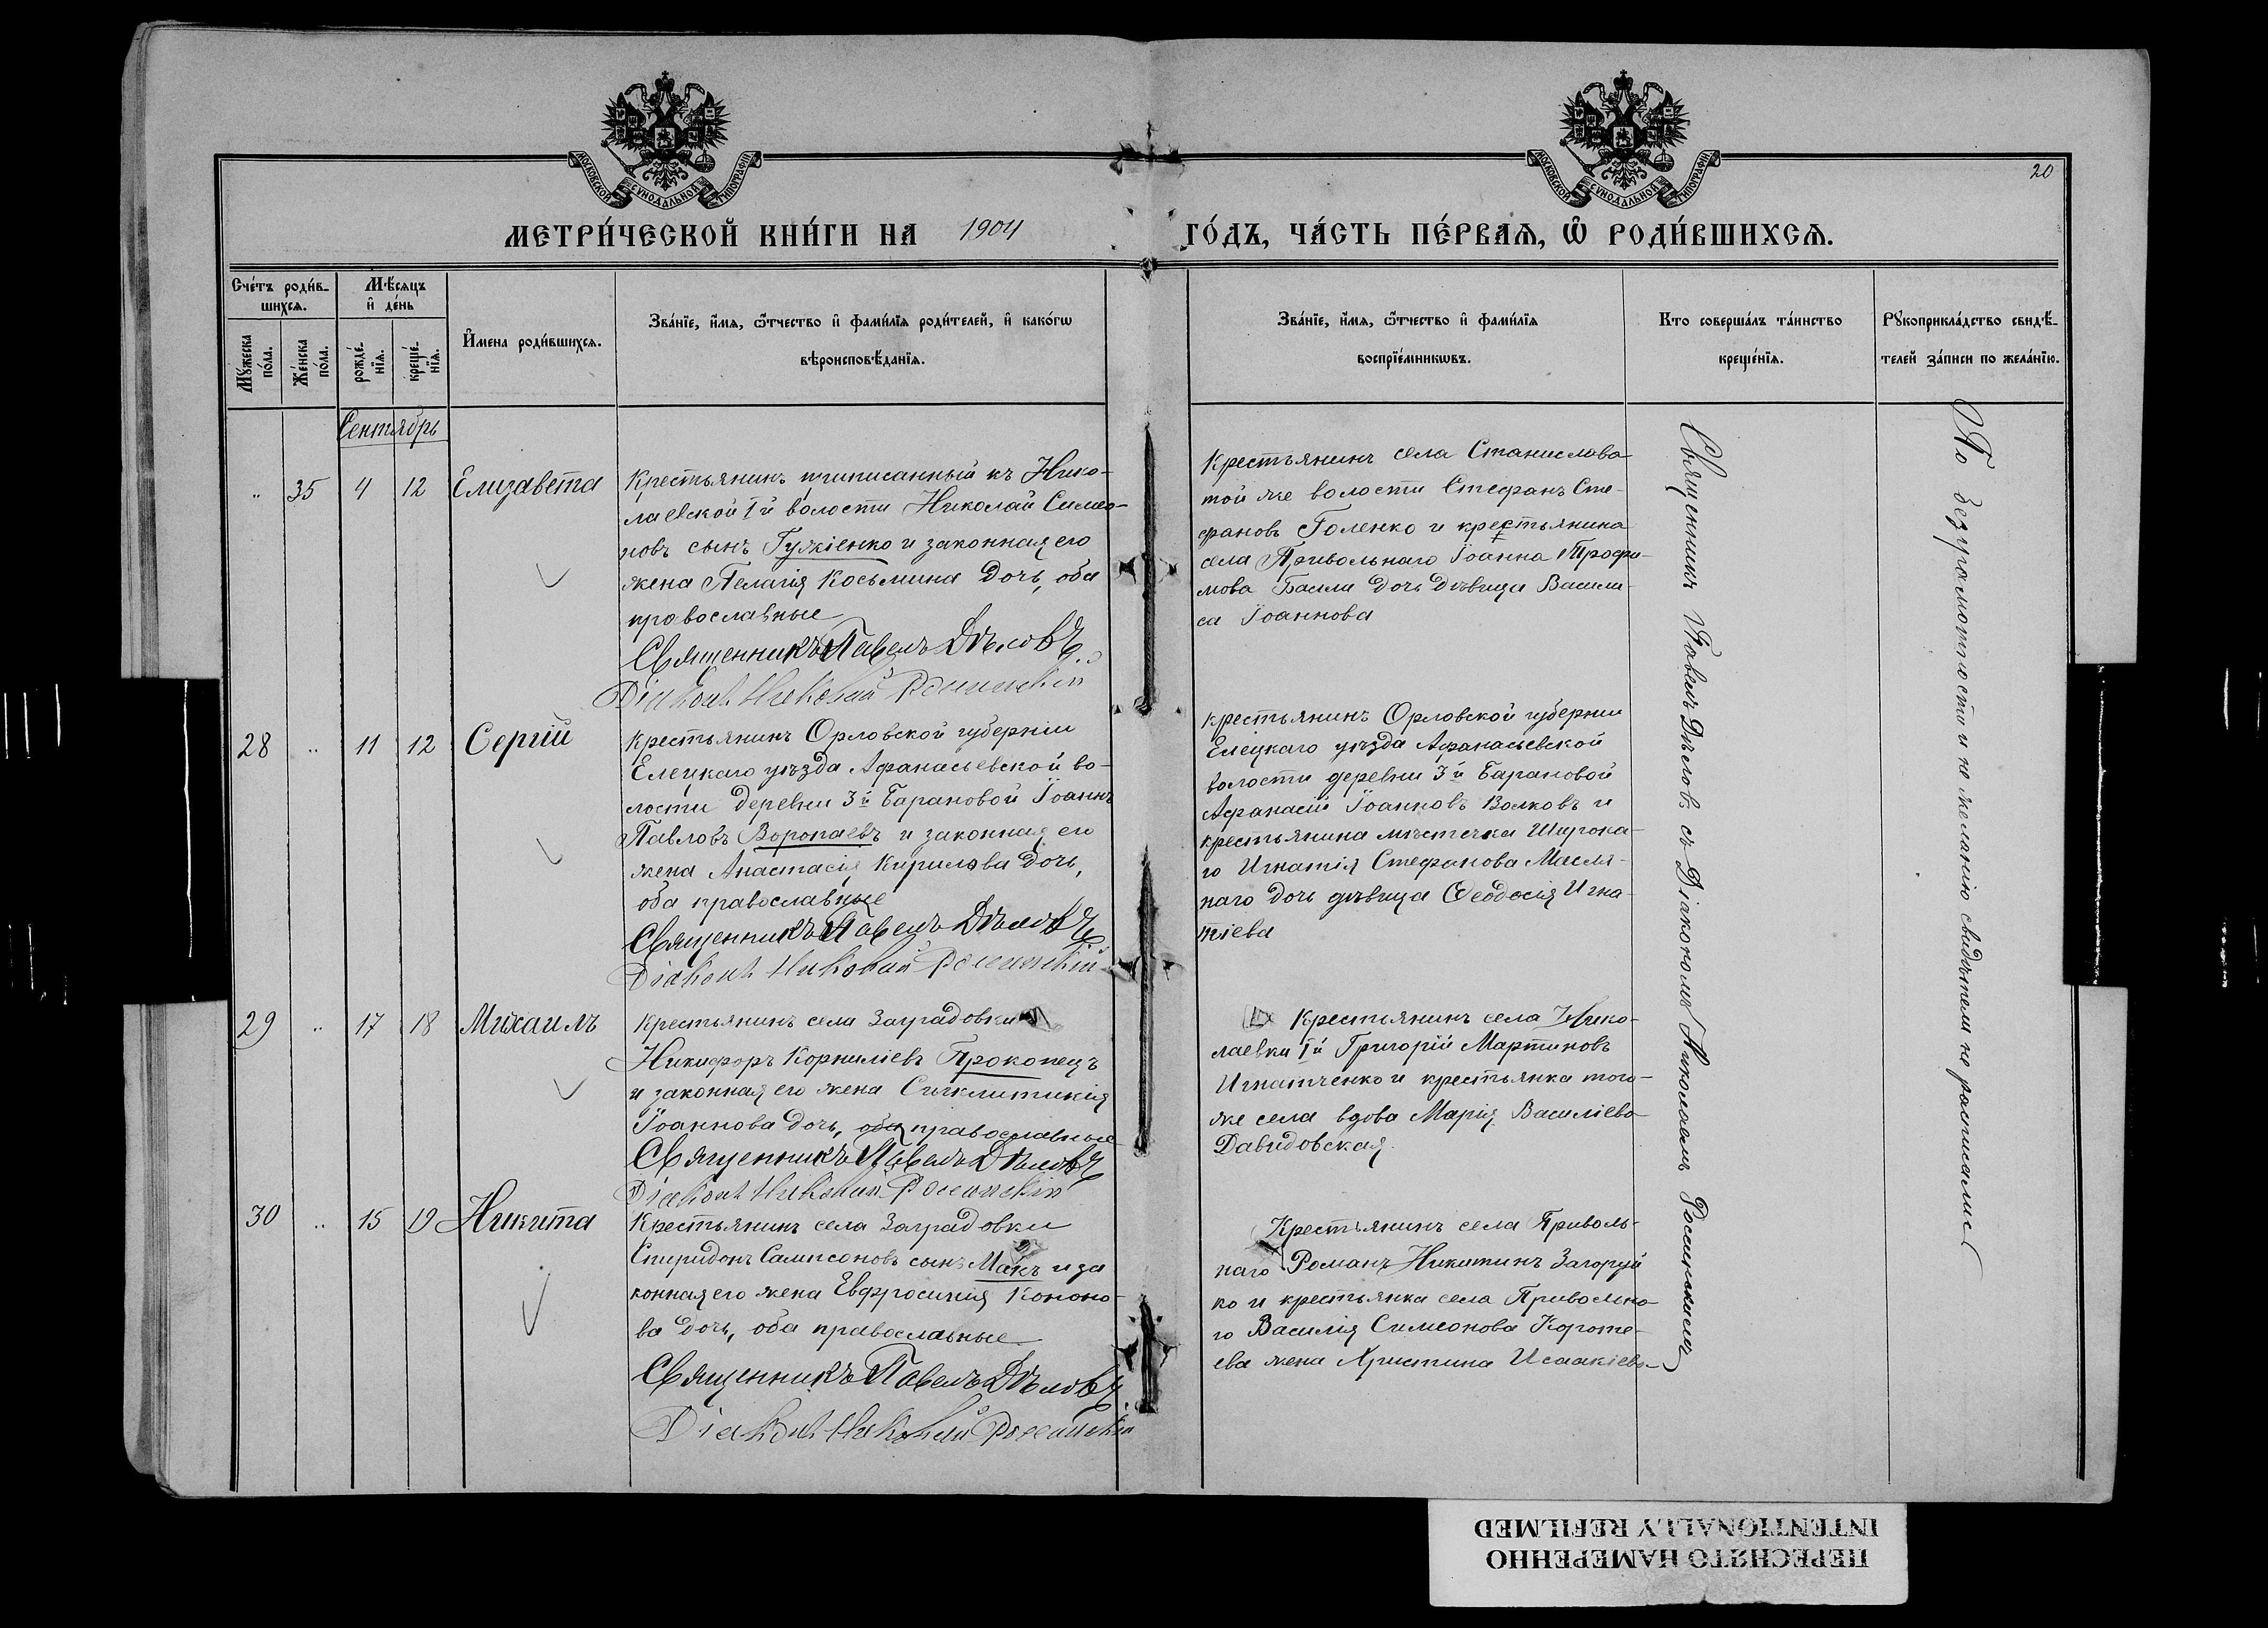 МОСКОВСКОЙ СѴНОДАЛЬНОЙ ТИПОГРАФІИ
МОСКОВСКОЙ СѴНОДАЛЬНОЙ ТИПОГРАФІИ
20
МЕТРИ́ЧЕСКОЙ КНИ́ГИ НА 1904
ГО́ДЪ, ЧА́СТЬ ПЕ́РВАѦ, Ѽ РОДИ́ВШИХСѦ.
Сче́тъ роди́в-
шихсѧ.
Мѣ́сѧцъ
и҆ де́нь
Мꙋ́жеска
по́ла.
Же́нска
по́ла.
рожде́-
нїѧ.
креще́-
нїѧ.
И҆мена роди́вшихсѧ.
Зва́нїе, и҆́мѧ, ѻ҆́тчество и҆ фами́лїѧ роди́телей, и҆ како́гѡ
вѣроисповѣ́данїѧ.
Зва́нїе, и҆́мѧ, ѻ҆́тчество и҆ фами́лїѧ
воспрїе́мникѡвъ.
Кто соверша́лъ та́инство
креще́нїѧ.
Рꙋкоприкла́дство свидѣ́-
телей за́писи по жела́нїю.
Сентябрь
" 35 4 12 Елизавета
Крестьянинъ приписанный къ Нико-
лаевской 1й волости Николай Симео-
новъ сынъ Гужіенко и законная его
жена Пелагія Косьмина дочь, оба
православные
Священникъ Павелъ Дѣловъ.
Діаконъ Николай Россинскій
Крестьянинъ села Станислава
той же волости Стефанъ Сте-
фановъ Голенко и крестьянина
села Привольнаго Іоанна Трофи-
мова Башли дочь дѣвица Васили-
са Іоаннова
28 " 11 12 Сергій
Крестьянинъ Орловской губерніи
Елецкаго уѣзда Афанасьевской во-
лости деревни 3й Барановой Іоаннъ
Павловъ Воропаевъ и законная его
жена Анастасія Кирилова дочь,
оба православные
Священникъ Павелъ Дѣловъ
Діаконъ Николай Россинскій
крестьянинъ Орловской губерніи
Елецкаго уѣзда Афанасьевской
волости деревни 3й Барановой
Афанасій Іоанновъ Волковъ и
крестьянина мѣстечка Широка-
го Игнатія Стефанова Масля-
наго дочь дѣвица Ѳеодосія Игна-
тіева
29 " 17 18 Михаилъ
Крестьянинъ села Заградовки
Никифоръ Корниліевъ Прокопецъ
и законная его жена Сигклитикія
Іоаннова дочь, оба православные
Священникъ Павелъ Дѣловъ
Діаконъ Николай Россинскій
Крестьянинъ села Нико-
лаевки 1й Григорій Мартиновъ
Игнатченко и крестьянка того-
же села вдова Марія Василіева
Давидовская.
30 " 15 19 Никита
Крестьянинъ села Заградовки
Спиридонъ Сампсоновъ сынъ Макъ и за
конная его жена Евфросинія Кононо-
ва дочь, оба православные
Священникъ Павелъ Дѣловъ.
Діаконъ Николай Россинскій
Крестьянинъ села Приволь-
наго Романъ Никитинъ Загоруй
ко и крестьянка села Привольна-
го Василія Симеонова Короте-
ева жена Христина Исаакіева
Священникъ Павелъ Дѣловъ съ Діакономъ Николаемъ Россинскимъ
По безграмотности и не желанію свидѣтели не росписались
ПЕРЕСНЯТО НАМЕРЕННО
INTENTIONALLY REFILMED